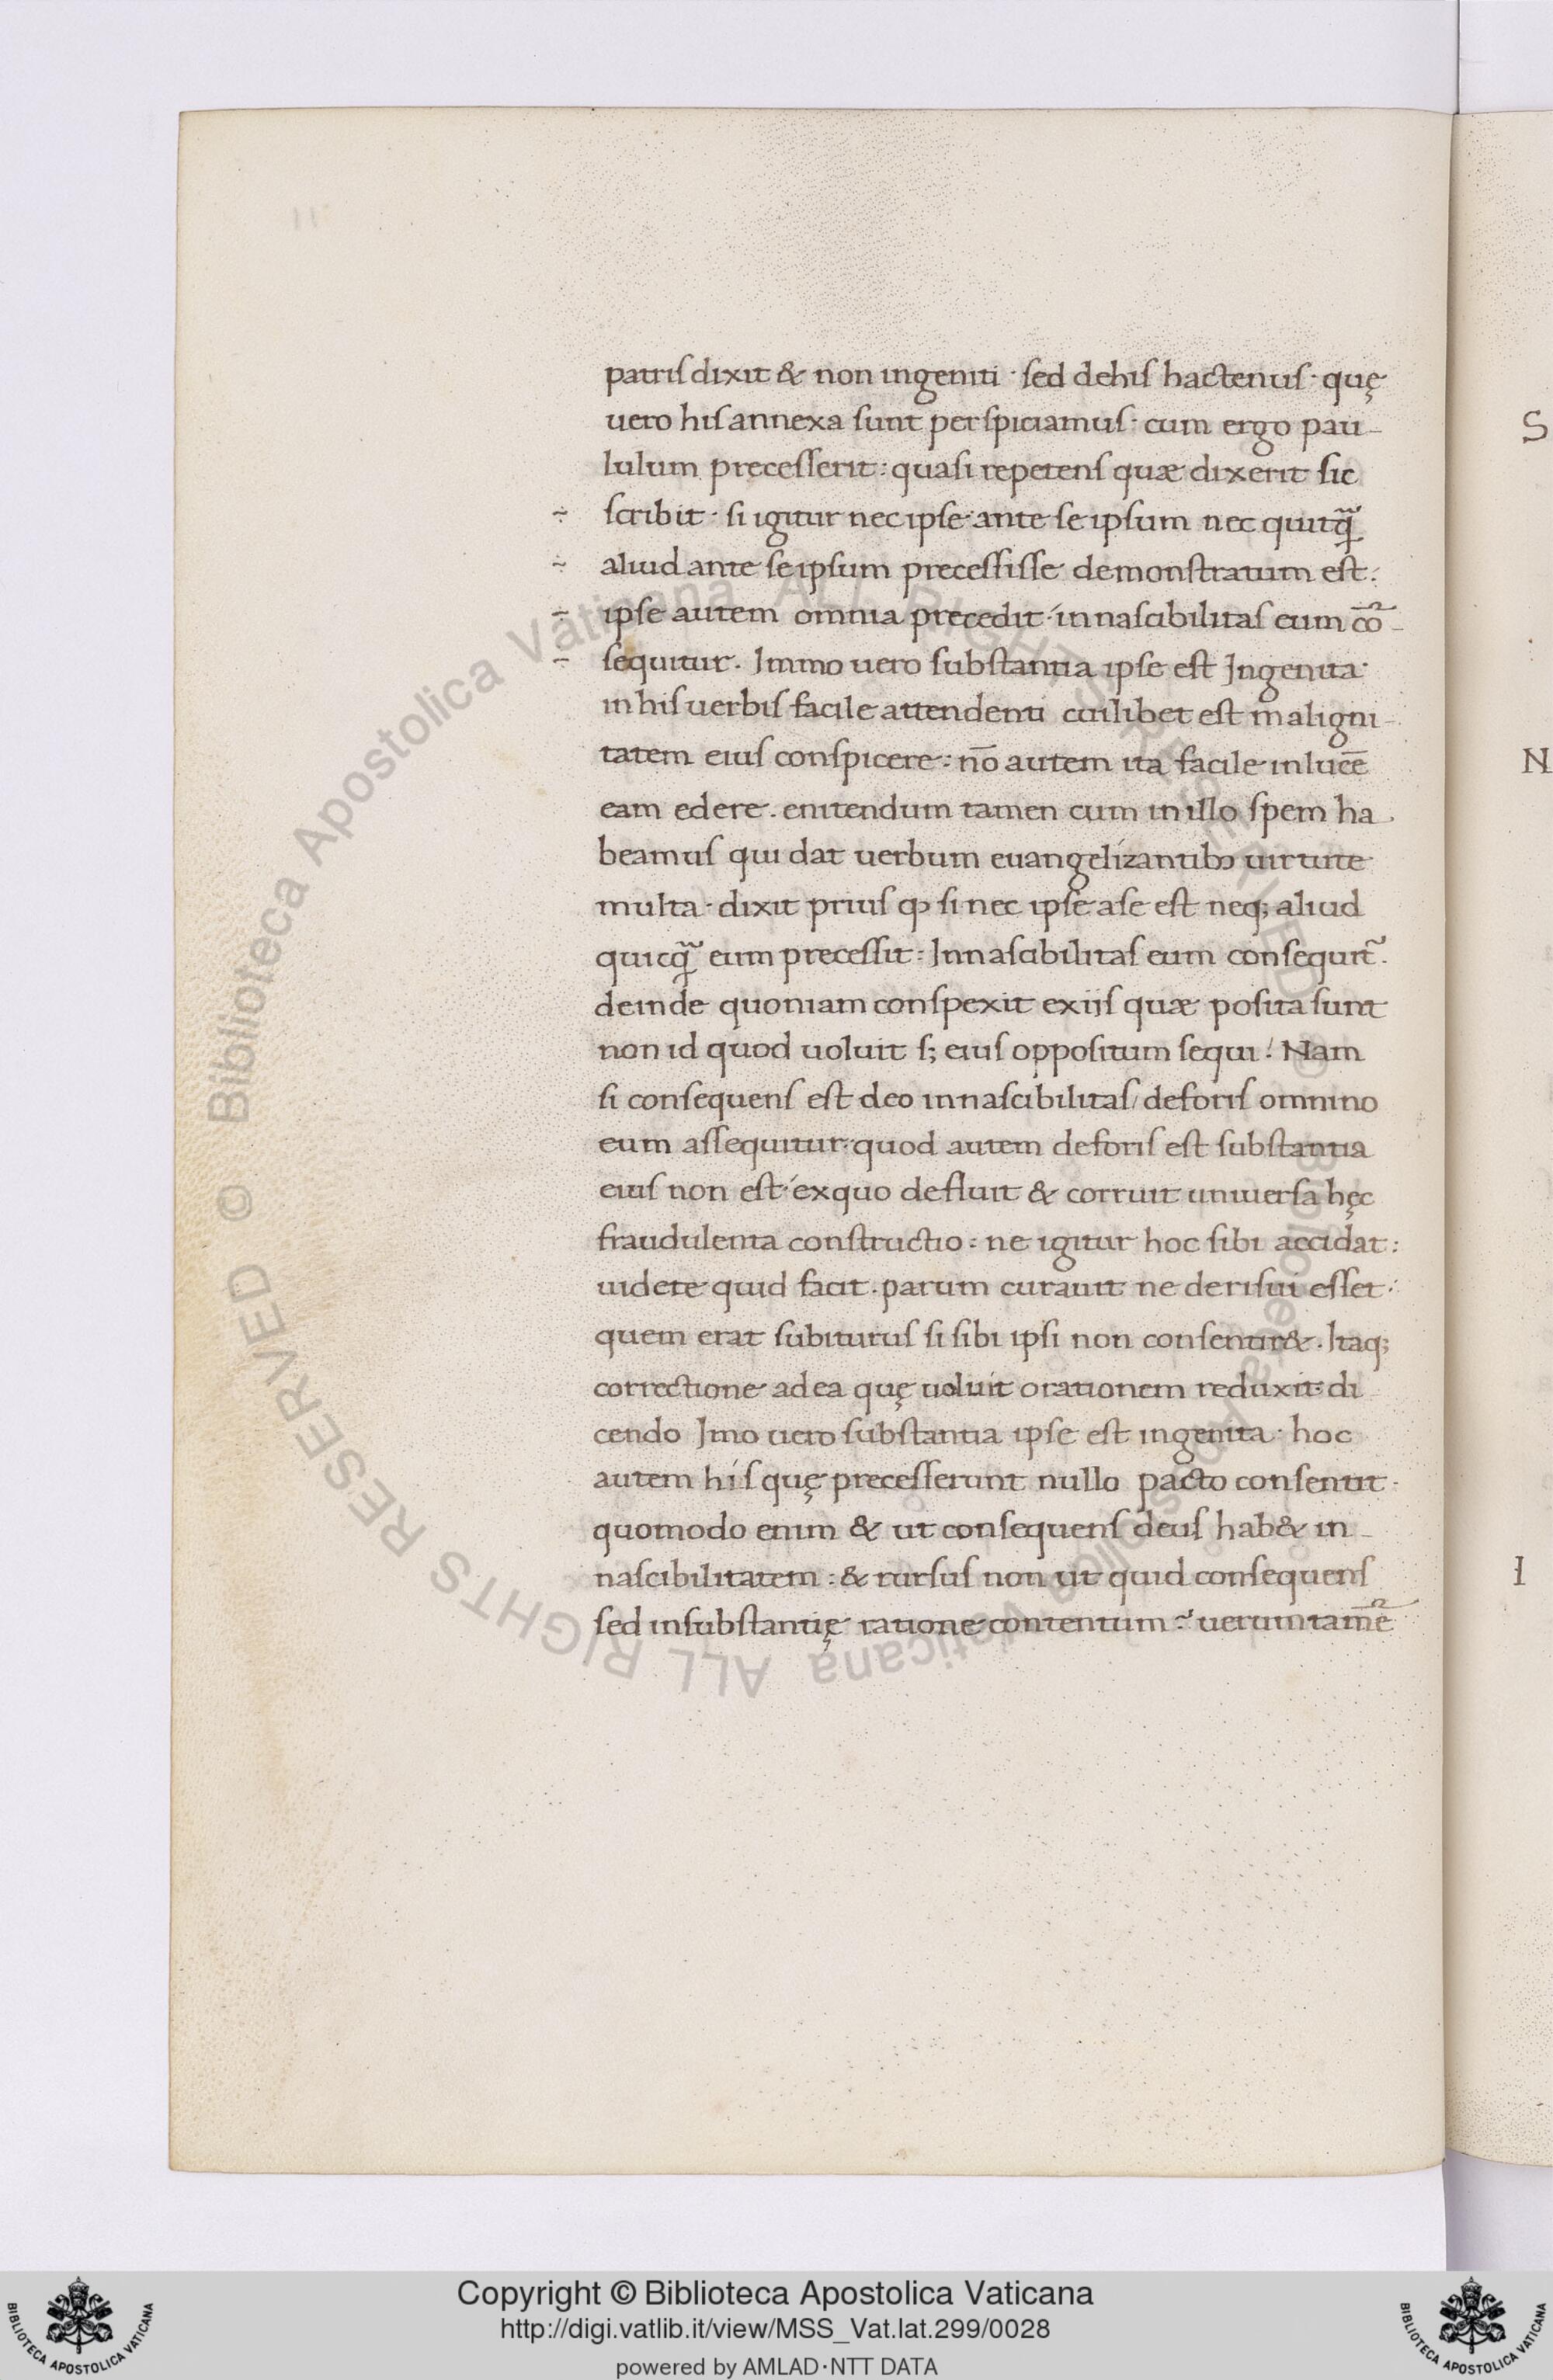 patris dixit & non ingeniti · sed de his hactenus · quę
uero his annexa sunt perspiciamus · cum ergo pau-
lulum precesserit : quasi repetens quæ dixerit sic
÷ scribit · si igitur nec ipse ante se ipsum nec quitq̃
÷ aliud ante se ipsum precessisse demonstratum est :
÷ ipse autem omnia precedit · innascibilitas eum cō-
÷ sequitur . Immo uero substantia ipse est Ingenita ·
in his uerbis facile attendenti cuilibet est maligni-
tatem eius conspicere : nō autem ita facile in lucē
eam edere . enitendum tamen cum in illo spem ha
beamus qui dat uerbum euangelizantibꝫ uirtute
multa · dixit prius ꝙ si nec ipse a se est neq; aliud
quicq̃ eum precessit : Innascibilitas eum consequit̃ .
deinde quoniam conspexit ex iis quæ posita sunt
non id quod uoluit s; eius oppositum sequi : Nam
si consequens est deo innascibilitas / deforis omnino
eum assequitur · quod autem deforis est substantia
eius non est · ex quo defluit & corruit uniuersa hęc
fraudulenta constructio : ne igitur hoc sibi accidat :
uidete quid facit . parum curauit ne derisui esset ·
quem erat subiturus si sibi ipsi non consentir& . Itaq;
correctione ad ea quę uoluit orationem reduxit · di
cendo Imo uero substantia ipse est ingenita · hoc
autem his quę precesserunt nullo pacto consentit ·
quomodo enim & ut consequens deus hab& in-
nascibilitatem : & rursus non ut quid consequens
sed in substantię ratione contentum ? ueruntamē
S
N
I
Copyright © Biblioteca Apostolica Vaticana
http://digi.vatlib.it/view/MSS_Vat.lat.299/0028
powered by AMLAD·NTT DATA
BIBLIOTECA APOSTOLICA VATICANA
BIBLIOTECA APOSTOLICA VATICANA
© Biblioteca Apostolica Vaticana ALL RIGHTS RESERVED © Biblioteca Apostolica Vaticana ALL RIGHTS RESERVED